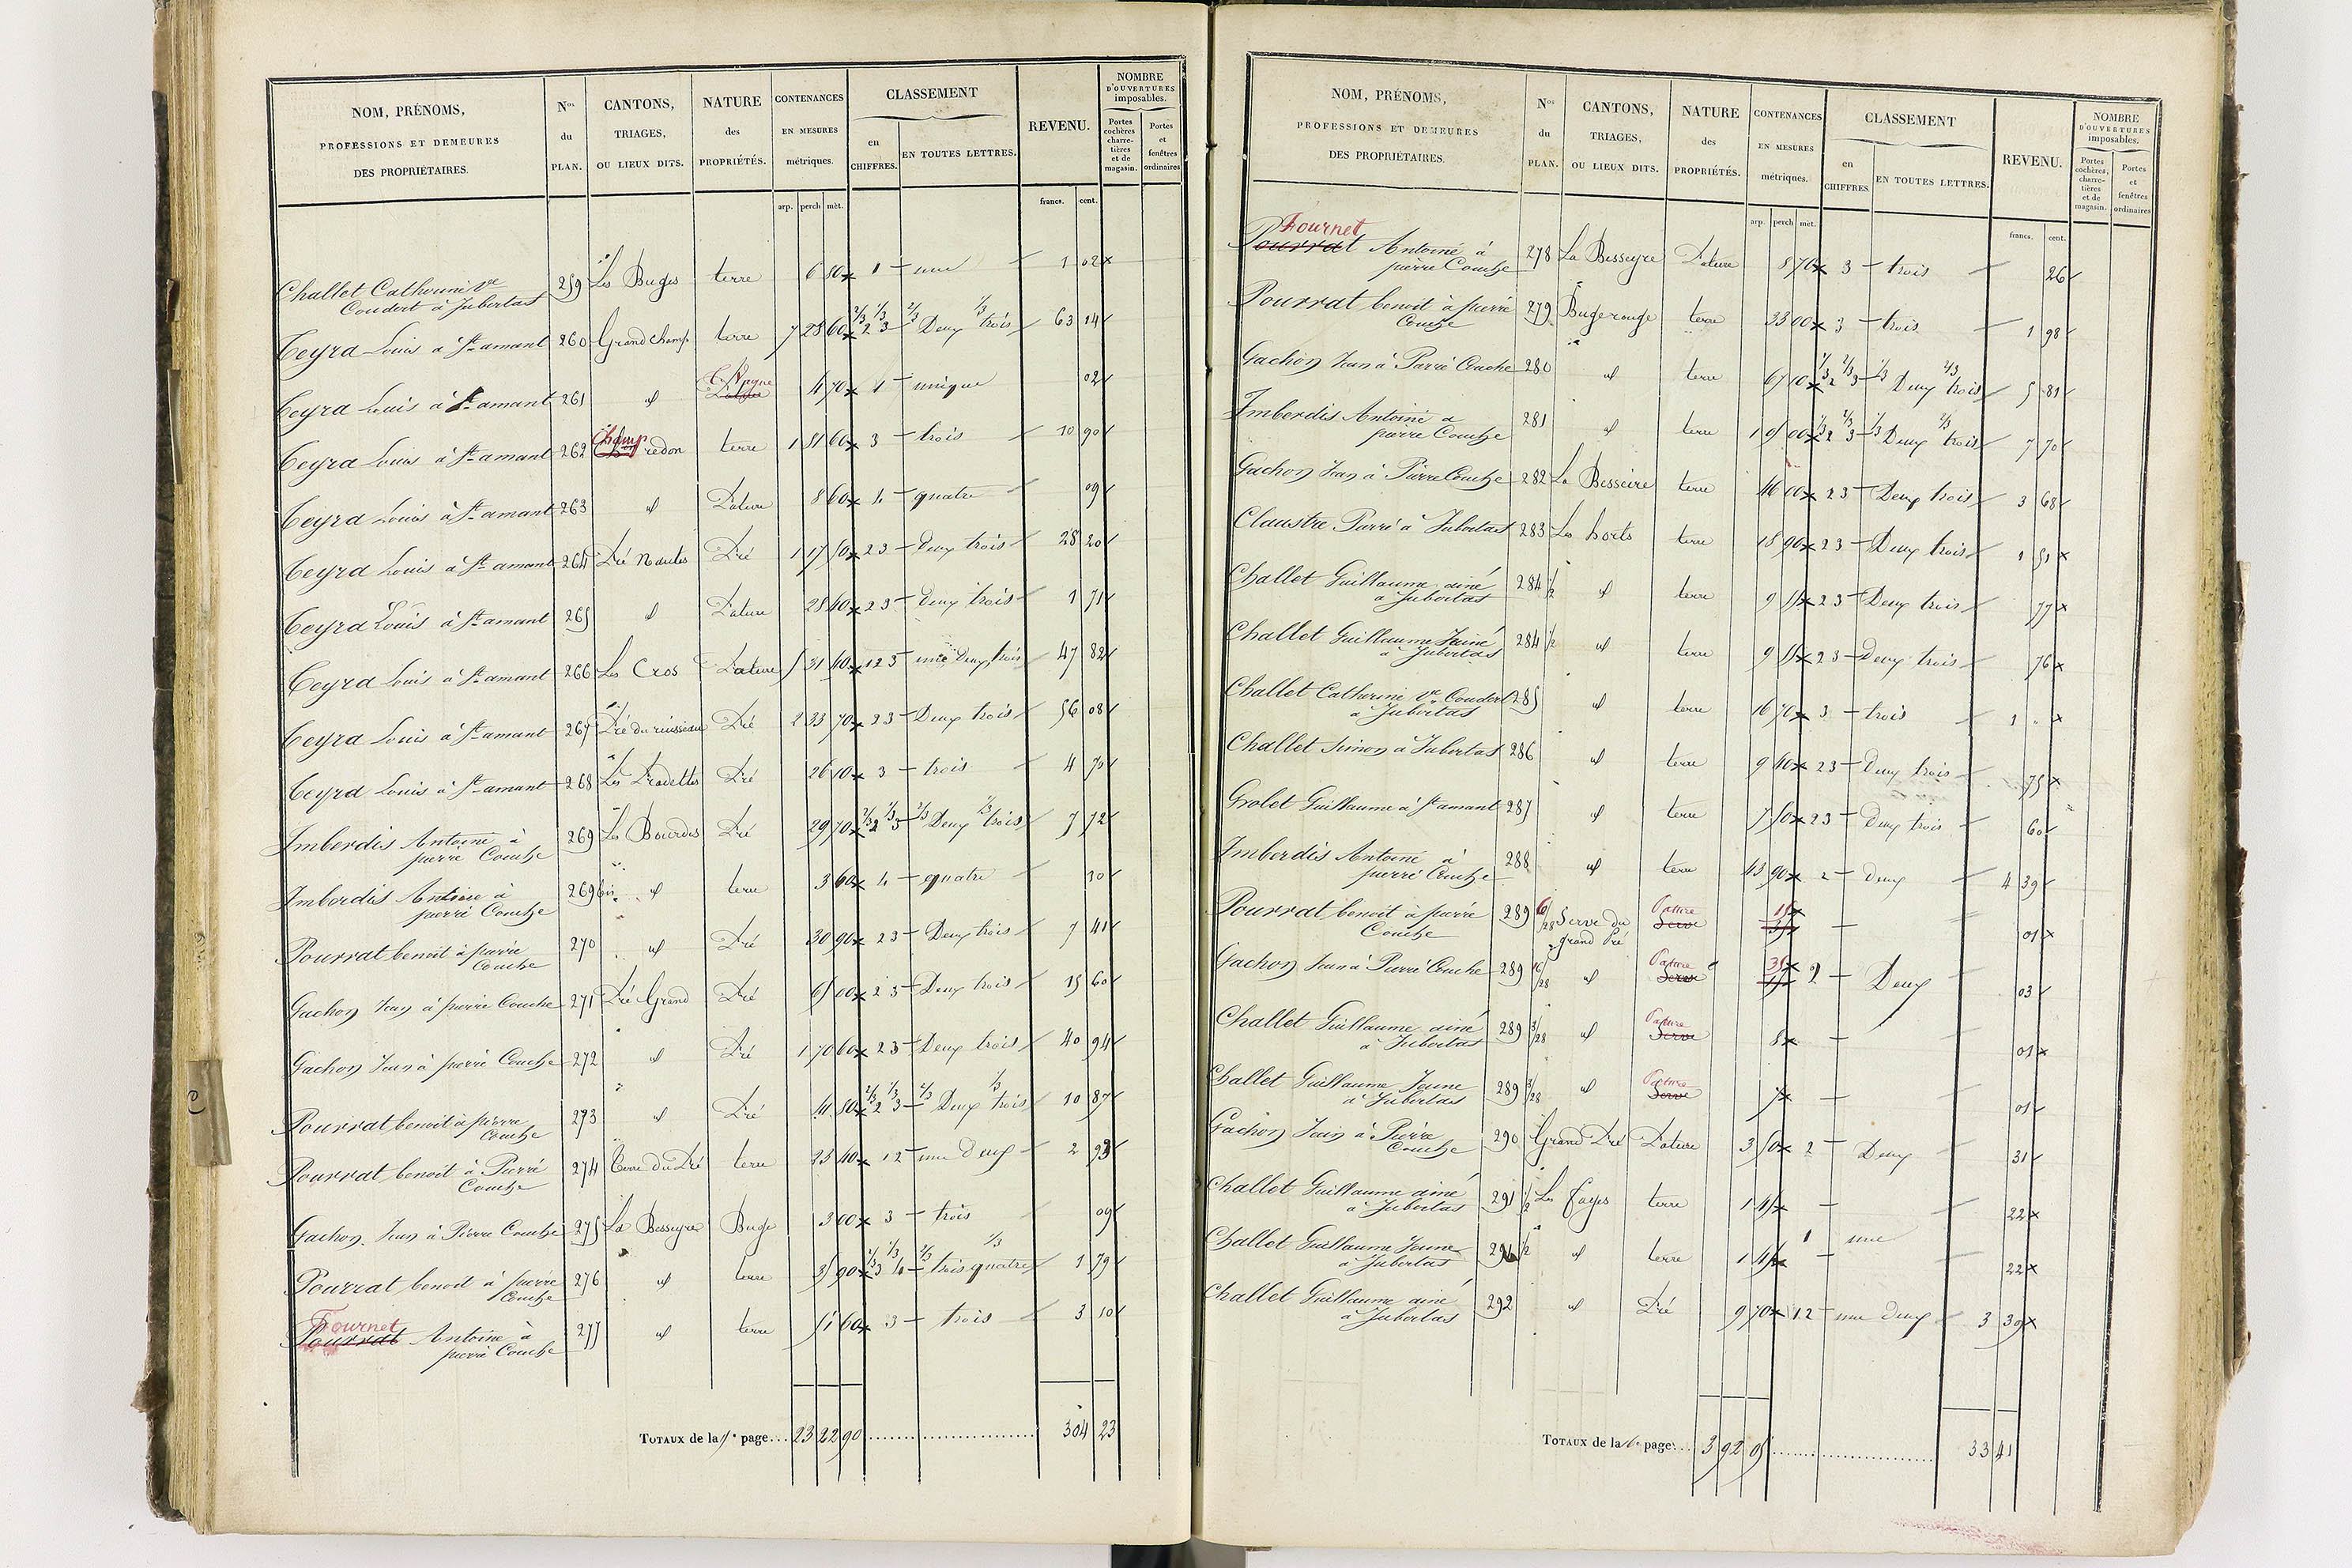 NOM, PRÉNOMS, PROFESSIONS ET DEMEURES DES PROPRIÉTAIRES. Nos du PLAN. CANTONS, TRIAGES, OU LIEUX DITS. NATURE des PROPRIÉTÉS. CONTENANCES EN MESURES métriques. CLASSEMENT en CHIFFRES. EN TOUTES LETTRES. REVENU. NOMBRE D'OUVERTURES imposables. Portes cochères charretières et de magasin. Portes et fenêtres ordinaires
arp. perch mèt. francs. cent.
Challet Catherine ve 259 Les Buges terre 6 80 1 une 1 02
Coudert à Jubertas
Teyra Louis à St amant 260 Grand champ terre 7 23 60 2/3 2 1/3 3 2/3 Deux 1/3 trois 63 14
Teyra Louis à St amant 261 id 4 70 1 unique 02
Teyra Louis à St amant 262 Champ redon terre 1 81 60 3 trois 10 90
Teyra Louis à St amant 263 id Pature 8 60 4 quatre 09
Teyra Louis à St amant 264 Pré Pré 1 17 50 2 3 deux trois 28 20
Teyra Louis à St amant 265 id Pature 28 40 2 3 deux trois 1 71
Teyra Louis à St amant 266 Les Cros Pature 5 31 40 1 2 3 une deux trois 47 82
Teyra Louis à St amant 267 Pré du ruisseau Pré 2 33 70 2 3 Deux trois 56 08
Teyra Louis à St amant 268 Les Pré 26 10 3 trois 4 70
Imberdis Antoine à 269 Les Bourdes Pré 29 70 2/3 2 1/3 3 2/3 Deux 1/3 trois 7 72
pierre Couche
Imberdis Antoine à 269 bis id terre 3 60 4 quatre 10
pierre Couche
Pourrat benoit à pierre 270 id Pré 30 90 2 3 Deux trois 7 41
Couche
Gachon Jean à pierre Couche 271 Pré Grand Pré 65 00 2 3 Deux trois 15 60
Gachon Jean à pierre Couche 272 id Pré 1 70 60 2 3 Deux trois 40 94
Pourrat benoit à pierre 273 id Pré 41 80 2/3 2 1/3 3 2/3 Deux 1/3 trois 10 87
Couche
Pourrat benoit à Pierre 274 Terre du Pré terre 23 40 1 2 une deux 2 93
Couche
Gachon Jean à Pierre Couche 275 La Besseyre Buge 3 00 3 trois 09
Pourrat benoit à pierre 276 id terre 35 90 2/3 3 1/3 4 2/3 trois 1/3 quatre 1 79
Couche
Fournet
Pourrat Antoine à 277 id terre 51 60 3 trois 3 10
pierre Couche
TOTAUX de la 5e page... 23 22 90 304 23
NOM, PRÉNOMS, PROFESSIONS ET DEMEURES DES PROPRIÉTAIRES. Nos du PLAN. CANTONS, TRIAGES, OU LIEUX DITS. NATURE des PROPRIÉTÉS. CONTENANCES EN MESURES métriques. CLASSEMENT en CHIFFRES EN TOUTES LETTRES. REVENU. NOMBRE D'OUVERTURES imposables. Portes cochères, charretières et de magasin. Portes et fenêtres ordinaires
arp. perch mèt. francs. cent.
Fournet
Pourrat Antoine à 278 La Besseyre Pature 8 70 3 trois 26
pierre Couche
Pourrat benoit à pierre 279 Buge rouge terre 33 00 3 trois 1 98
Couche
Gachon Jean à Pierre Couche 280 id terre 67 10 1/3 2 2/3 3 1/3 Deux 2/3 trois 5 81
Imberdis Antoine à 281 id terre 1 05 00 1/3 2 2/3 3 1/3 Deux 2/3 trois 7 70
pierre Couche
Gachon Jean à Pierre Couche 282 La Besseire terre 46 00 2 3 Deux trois 3 68
Claustre Pierre à Jubertas 283 Les horts terre 18 90 2 3 Deux trois 1 51
Challet Guillaume ainé 284 1/2 id terre 9 55 2 3 Deux trois 77
à Jubertas
Challet Guillaume Jeune 284 1/2 id terre 9 55 2 3 Deux trois 76
à Jubertas
Challet Catherine ve Coudert 285 id terre 16 70 3 trois 1 "
à Jubertas
Challet Simon à Jubertas 286 id terre 9 40 2 3 Deux trois 75
Grolet Guillaume à St amant 287 id terre 7 50 2 3 Deux trois 60
Imberdis Antoine à 288 id terre 43 90 2 Deux 4 39
pierre Couche
Pourrat benoit à pierre 289 6/28 Serve du Pature Serve 15 01
Couche grand Pré
Gachon Jean à Pierre Couche 289 16/28 id Pature Serve 35 2 Deux 03
Challet Guillaume ainé 289 3/28 id Pature Serve 8 01
à Jubertas
Challet Guillaume Jeune 289 3/28 id Pature Serve 7 01
à Jubertas
Gachon Jean à Pierre 290 Grand Pré Pature 3 50 2 Deux 31
Couche
Challet Guillaume ainé 291 1/2 Les fayes terre 1 45 22
à Jubertas
Challet Guillaume Jeune 291 1/2 id terre 1 45 1 une 22
à Jubertas
Challet Guillaume ainé 292 id Pré 9 70 1 2 une deux 3 39
à Jubertas
TOTAUX de la 6e page... 3 92 05 33 41